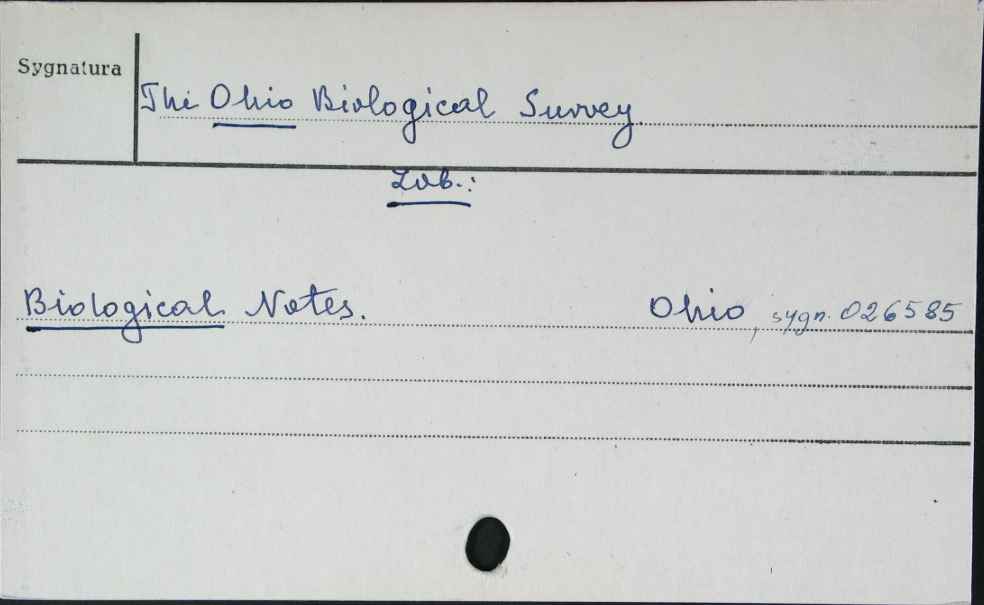 Sygnatura
The Ohio Biological Survey
Zob.:
Biological Notes. Ohio, sygn. 026585